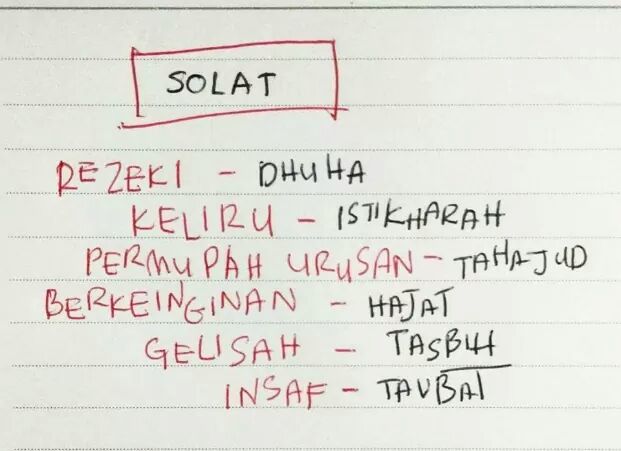 SOLAT
REZEKI - DHUHA
KELIRU - ISTIKHARAH
PERMUPAH URUSAN - TAHAJUD
BERKEINGINAN - HAJAT
GELISAH - TASBIH
INSAF - TAUBAT